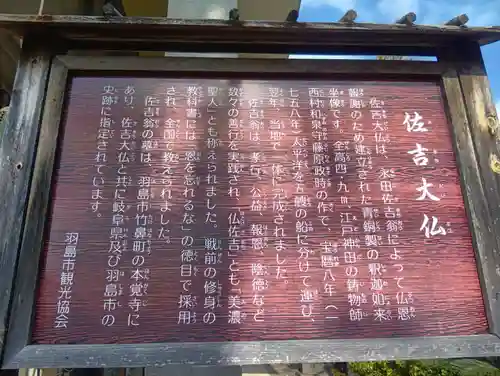 佐吉大仏
佐吉大仏は、永田佐吉翁によって仏恩
報謝のため建立された青銅製の釈迦如来
坐像です。全高四・九m、江戸神田の鋳物師
西村和泉守藤原政時の作で、宝暦八年(一
七五八年)大半を五艘の船に分けて運び、
翌年、当地で一体に完成されました。
佐吉翁は、孝行、公益、報恩、陰徳など
数々の善行を実践され、「仏佐吉」とも、「美濃
聖人」とも称えられました。戦前の修身の
教科書には「恩を忘れるな」の徳目で採用
され、全国で教えられました。
佐吉翁の墓は、羽島市竹鼻町の本覚寺に
あり、佐吉大仏と共に岐阜県及び羽島市の
史跡に指定されています。
羽島市観光協会